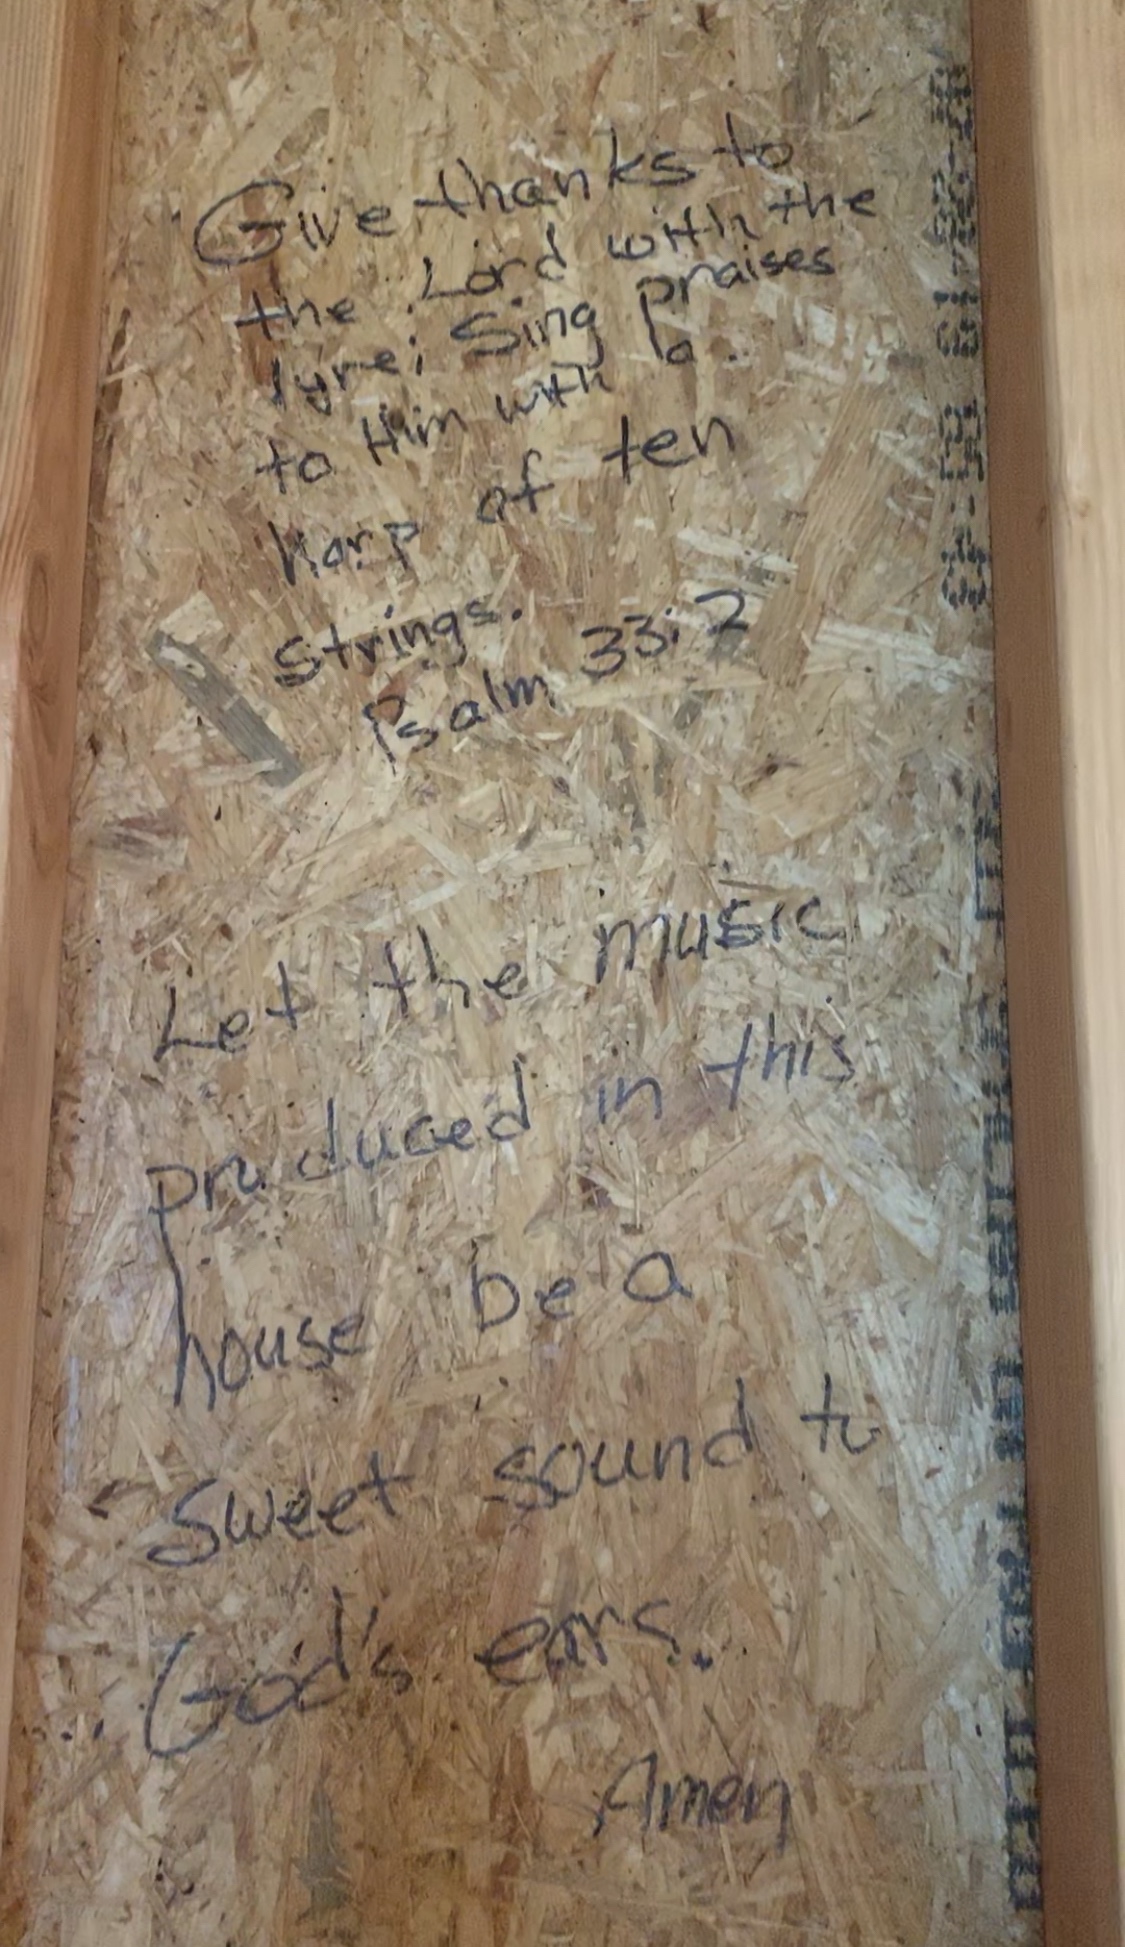 Give thanks to
the Lord with the
lyre; Sing praises
to Him with a
harp of ten
strings.
Psalm 33:2
Let the music
produced in this
house be a
Sweet sound to
God's ears.
Amen